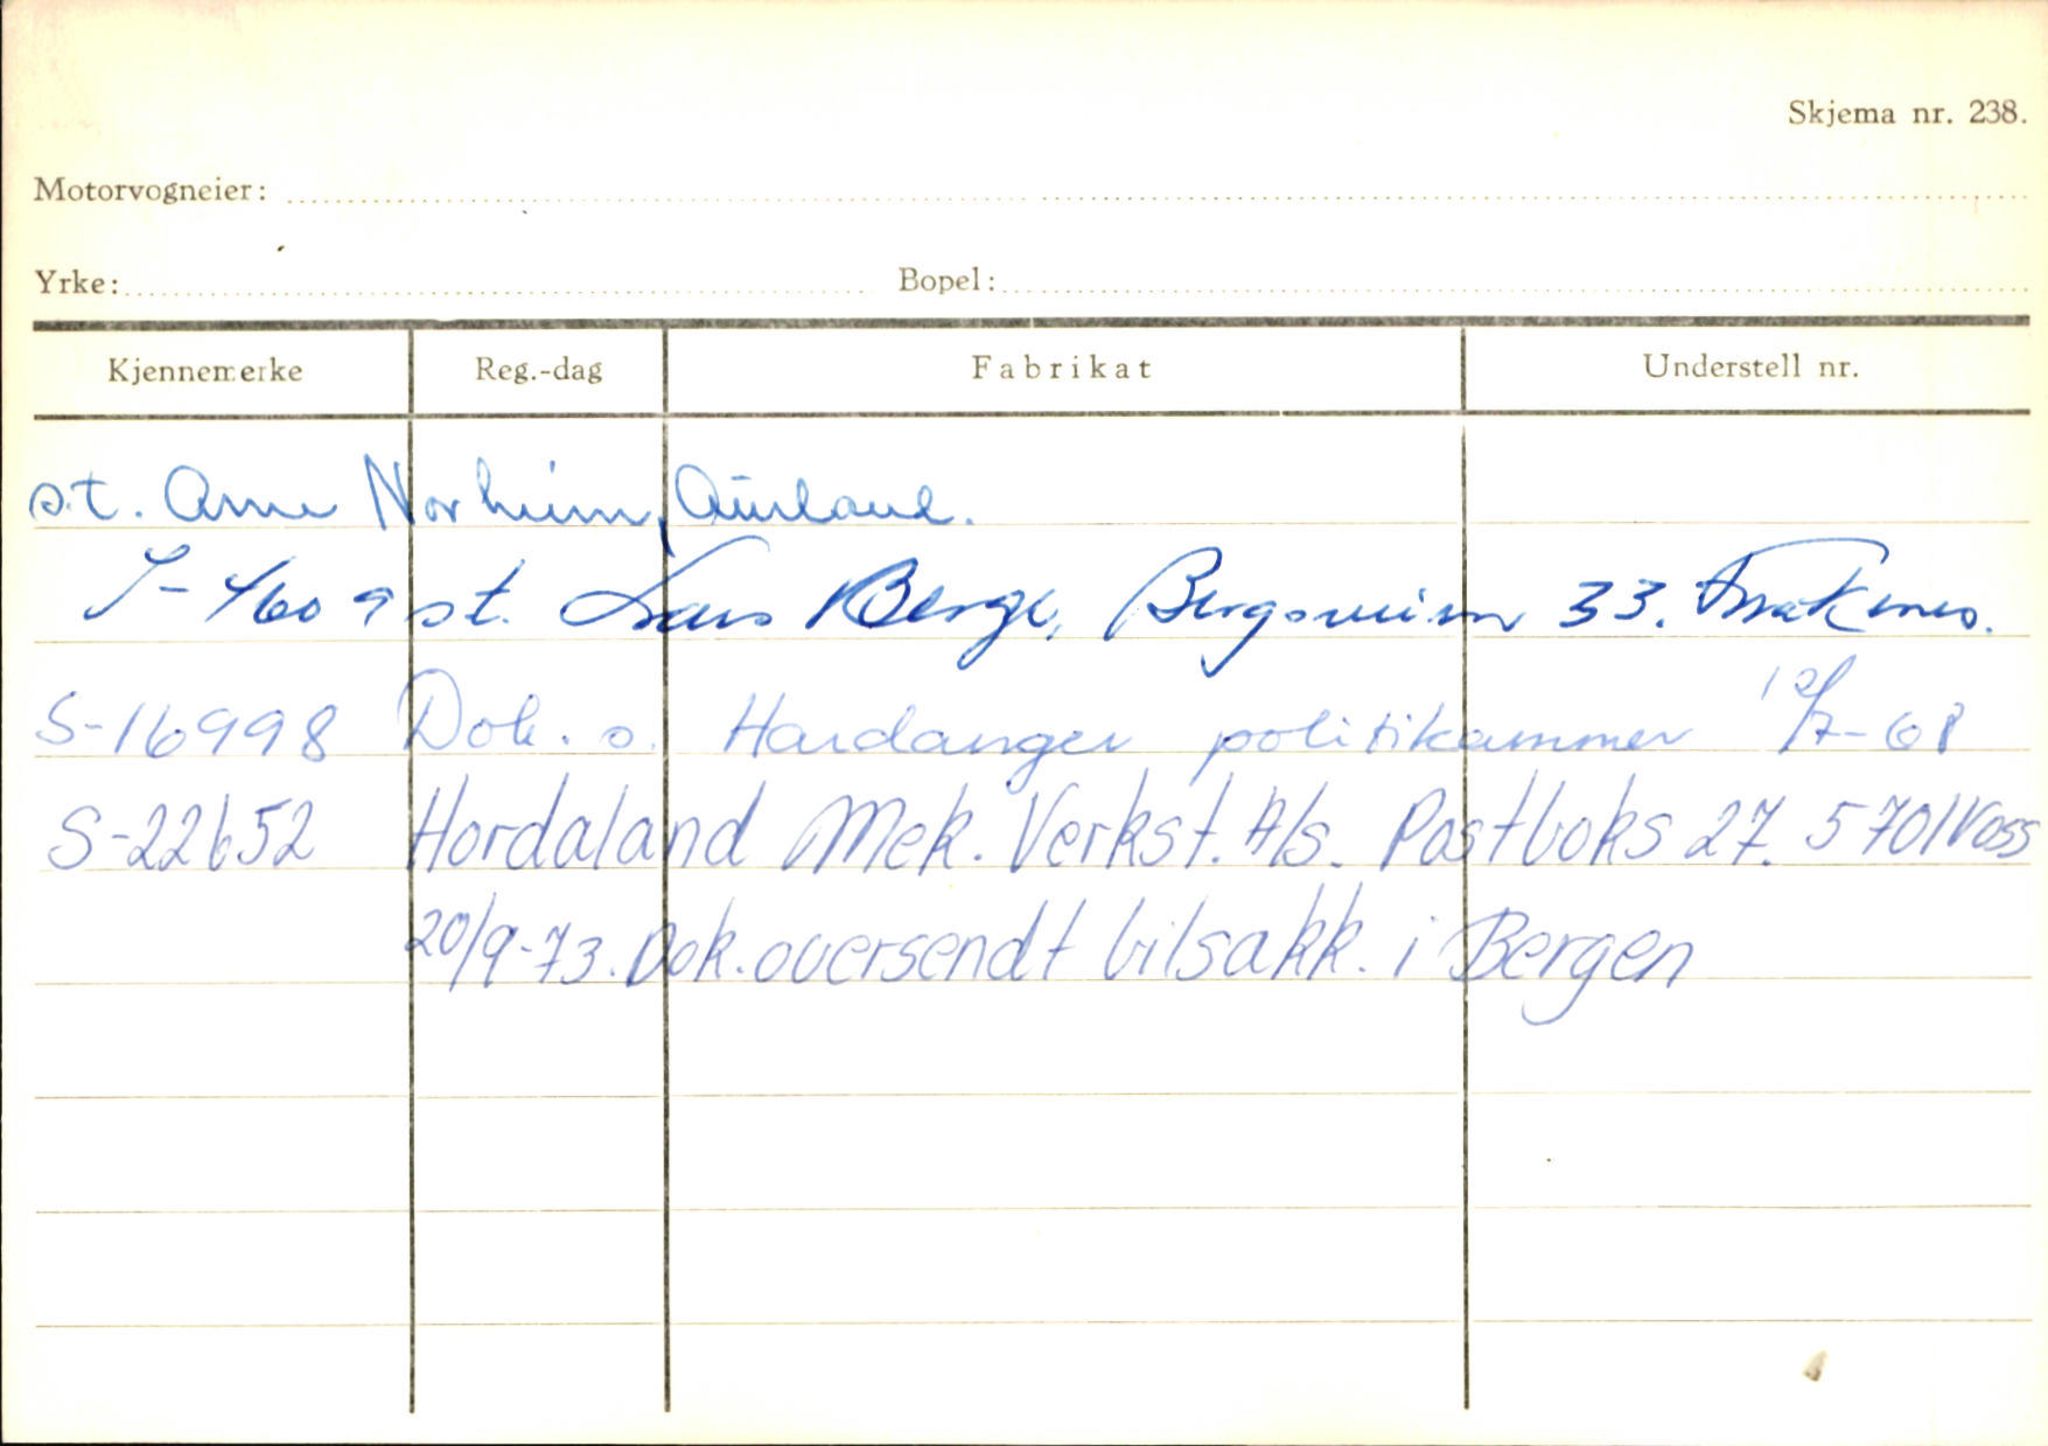 Skjema nr. 238.
Motorvogneier:
Yrke: Bopel:
Kjennemerke Reg.-dag Fabrikat Understell nr.
s.t. Arne Norheim, Aurland.
S-4609 st. Lars Berge, 33.
S-16998 Dok. o. Hardanger politikammer 12/7-68
S-22652 Hordaland Mek. Verkst. A/s. Postboks 27. 5701 Voss
20/9-73. Dok. oversendt bilsakk. i Bergen